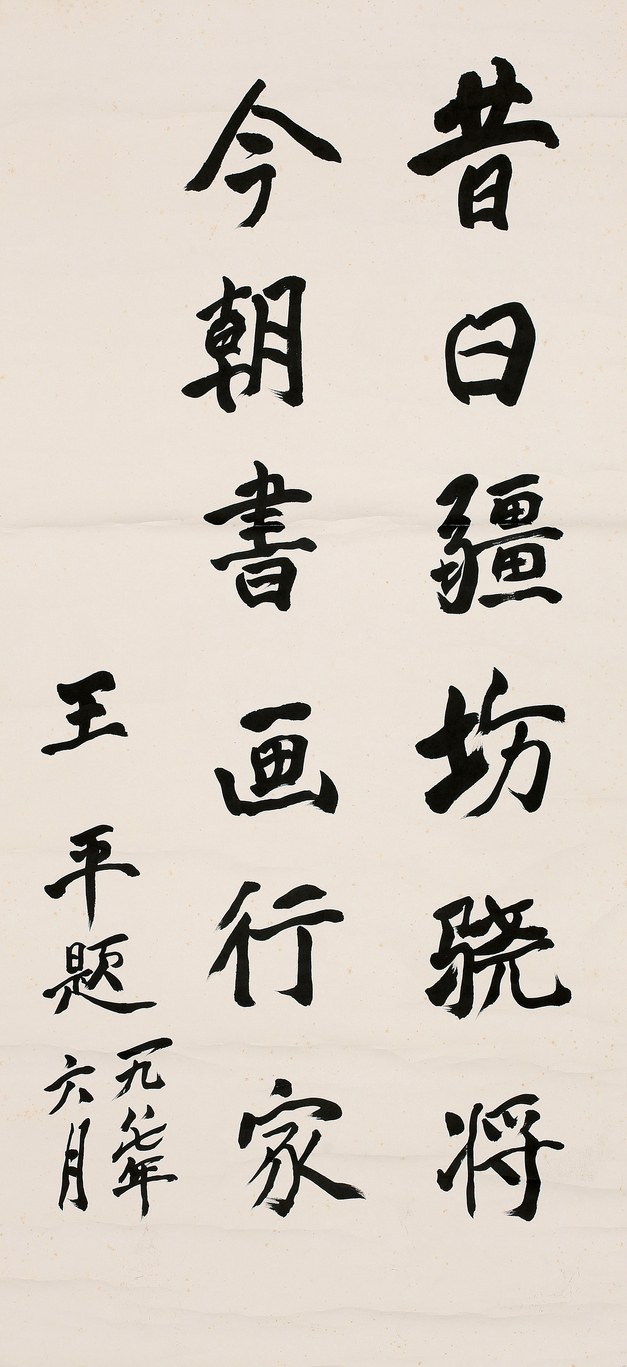 昔日疆坊骁将
今朝書画行家
王平题
一九八七年
六月